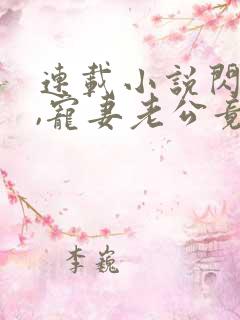 連載小說閃
,寵妻老公竟
李巍